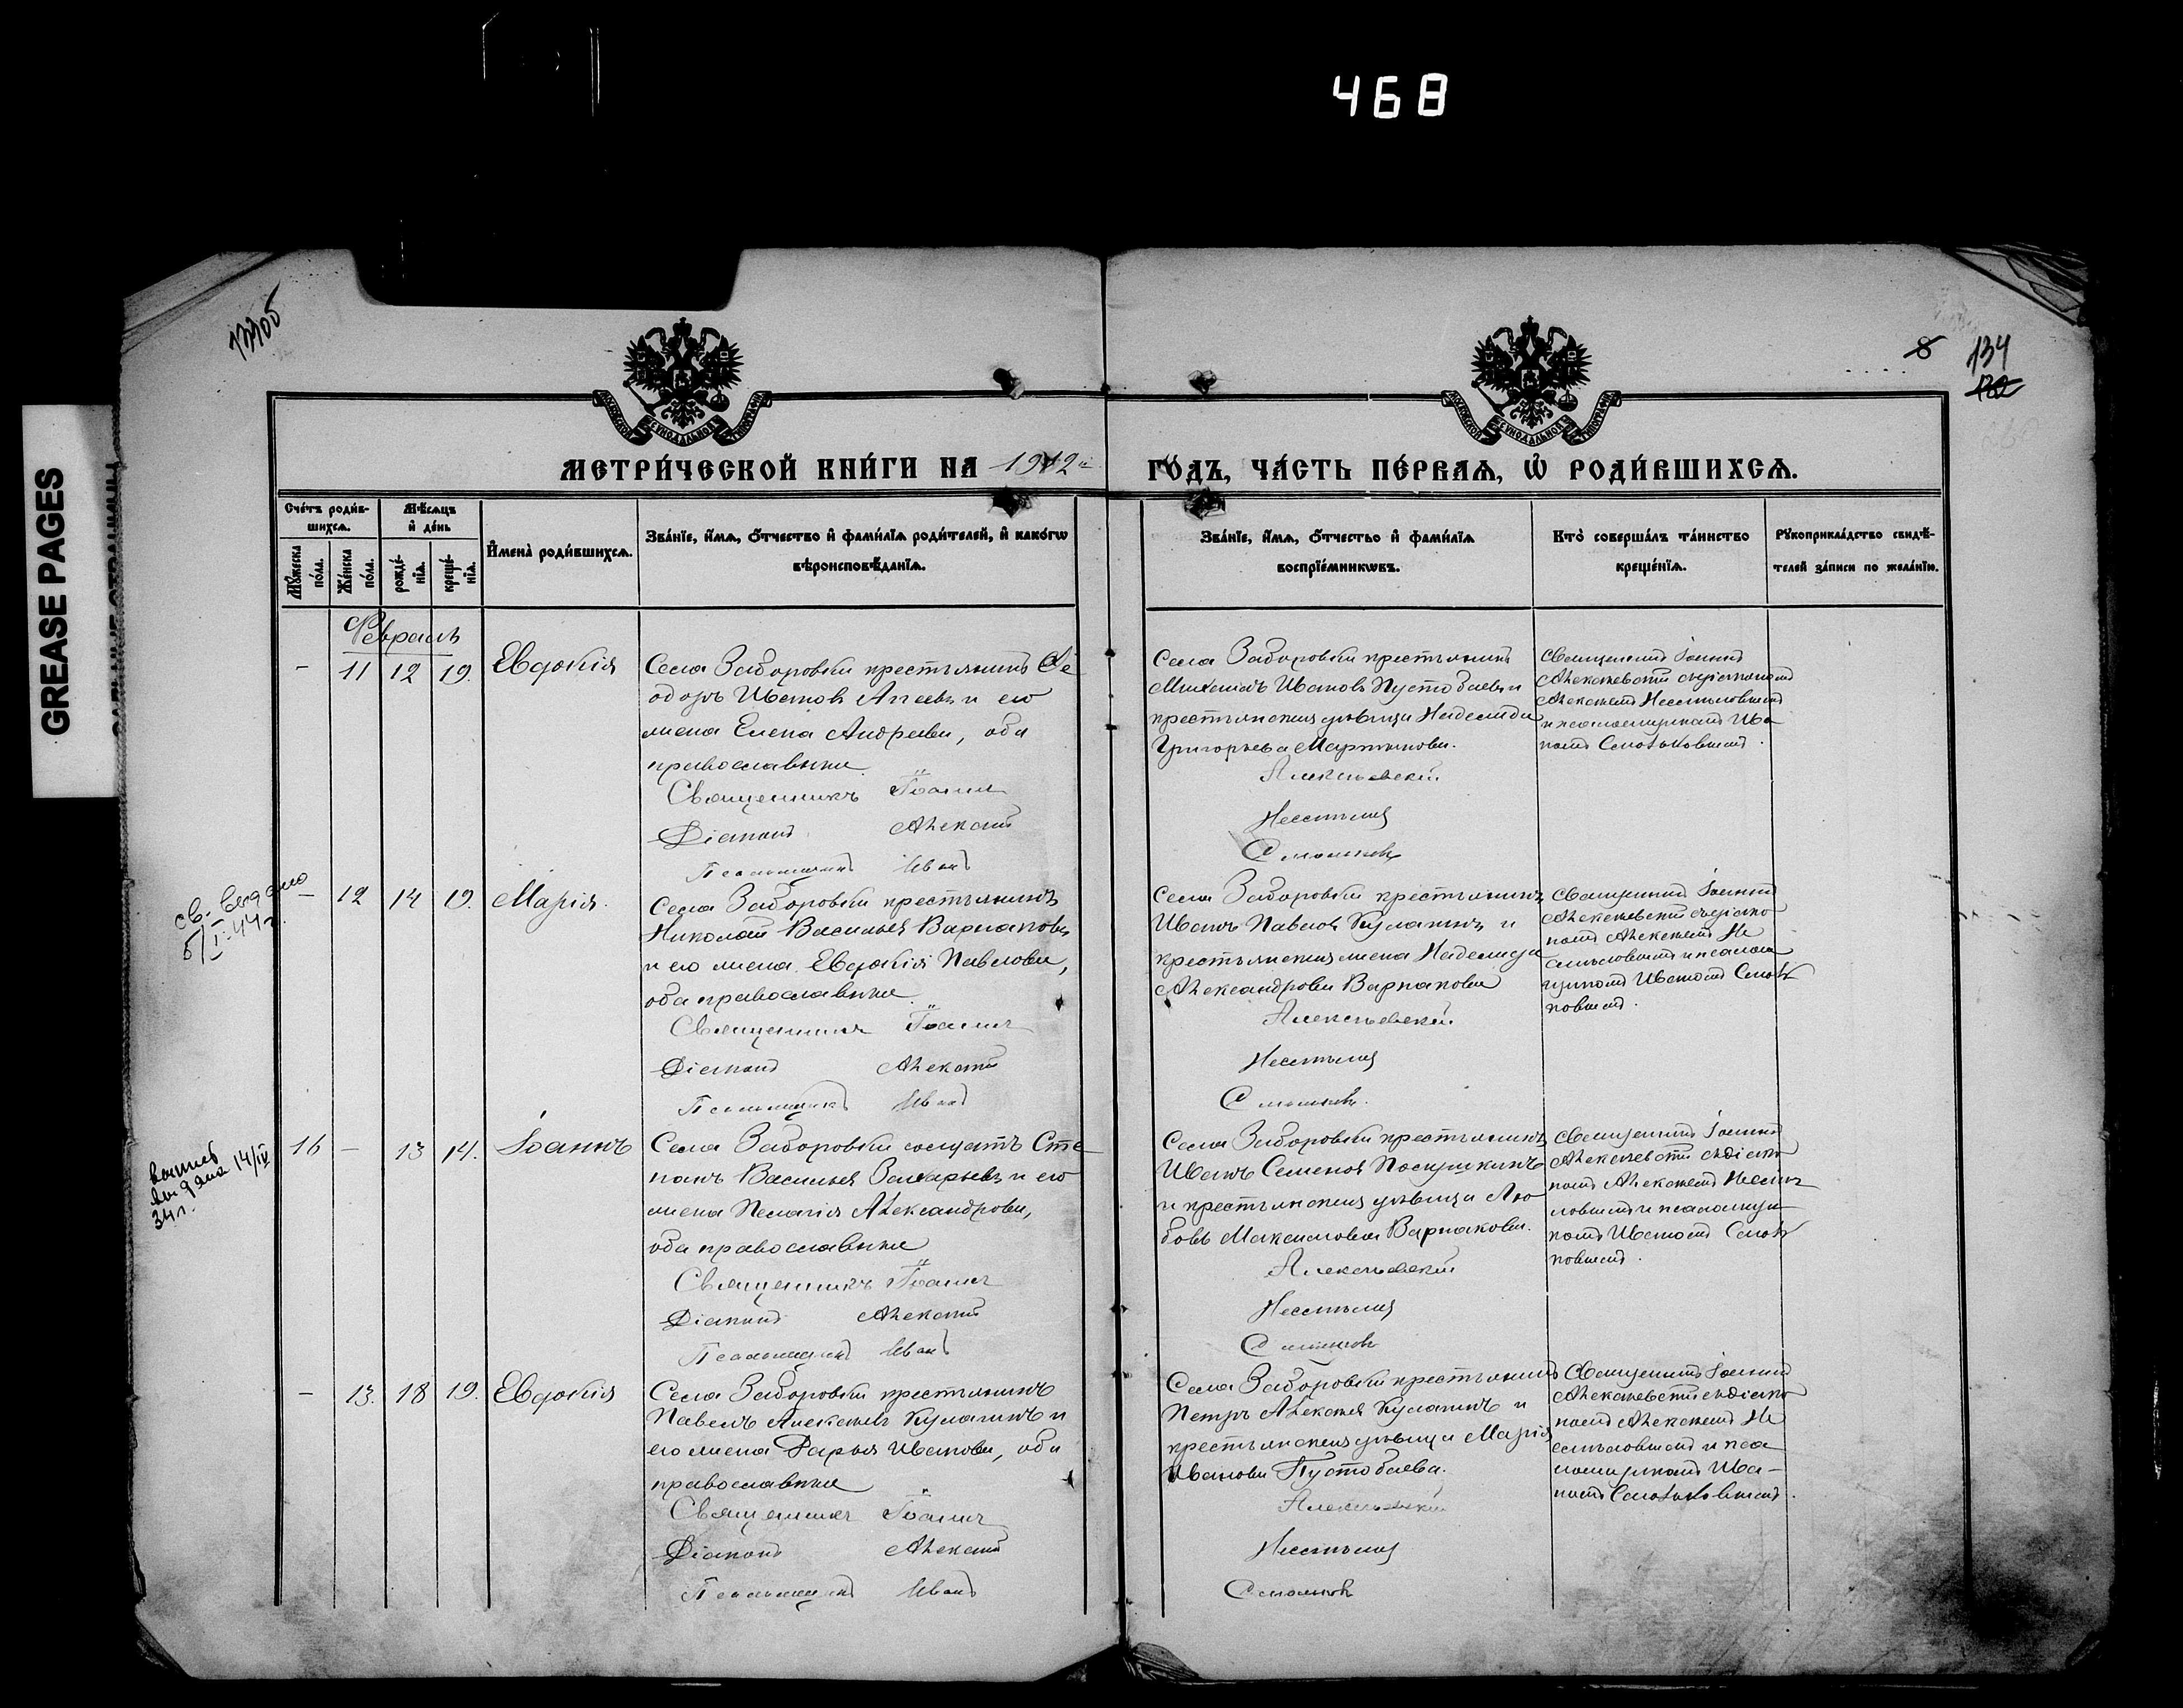 468
GREASE PAGES
133об
8
134
132
МЕТРИ́ЧЕСКОЙ КНИ́ГИ НА 1912й ГО́ДЪ, ЧА́СТЬ ПЕ́РВАѦ, Ѡ҆ РОДИ́ВШИХСѦ.
Сче́тъ роди́в-
шихсѧ.
Мꙋ́жеска
по́ла.
Же́нска
по́ла.
Мѣ́сѧцъ
и҆ де́нь
рожде́-
нїѧ.
креще́-
нїѧ.
И҆мена̀ роди́вшихсѧ.
Зва́нїе, и҆́мѧ, ѻ҆́тчество и҆ фами́лїѧ роди́телей, и҆ како́гѡ
вѣроисповѣ́данїѧ.
Зва́нїе, и҆́мѧ, ѻ҆́тчество и҆ фами́лїѧ
воспрїе́мникѡвъ.
Кто̀ соверша́лъ та́инство
креще́нїѧ.
Рꙋкоприкла́дство свидѣ́-
телей за́писи по жела́нїю.
Февраль
- 11 12 19. Евдокія
Села Заборовки крестьянинъ Ѳе
одоръ Ивановъ Агеевъ и его
жена Елена Андреева, оба
православные
Священникъ Іоаннъ
Діаконъ Алексѣй
Псаломщикъ Иванъ
Села Заборовки крестьянинъ
Михаилъ Ивановъ Пустобаевъ и
крестьянская дѣвица Надежда
Григорьева Мартынова.
Алексѣевскій
Несмѣлов
Смольков
Священникъ Іоаннъ
Алексѣевскій съ діакономъ
Алексѣемъ Несмѣловымъ
и псаломщикомъ Ива
номъ Смольковымъ.
св. выдано
5/I-44 г.
- 12 14 19. Марія.
Села Заборовки крестьянинъ
Николай Васильев Варлаковъ
и его жена Евдокія Павлова,
оба православные
Священникъ Іоаннъ
Діаконъ Алексѣй
Псаломщикъ Иванъ
Села Заборовки крестьянинъ
Иванъ Павлов Кулагинъ и
крестьянская жена Надежда
Александрова Варлакова
Алексѣевскій
Несмѣлов
Смольковъ.
Священникъ Іоаннъ
Алексѣевскій съ діако
номъ Алексѣемъ Не
смѣловымъ и псалом
щикомъ Иваномъ Смоль
ковымъ.
выпись
выдана 14/IV
34 г.
16 - 13 14. Іоаннъ
Села Заборовки солдатъ Сте
панъ Васильев Захарьевъ и его
жена Пелагія Александрова,
оба православные
Священникъ Іоаннъ
Діаконъ Алексѣй
Псаломщикъ Иванъ
Села Заборовки крестьянинъ
Иванъ Семенов
и крестьянская дѣвица Лю
бовь Максимова Варлакова.
Алексѣевскій
Несмѣлов
Смольков
Священникъ Іоаннъ
Алексѣевскій съ діако
номъ Алексѣемъ Несмѣ
ловымъ и псаломщи
комъ Иваномъ Смоль
ковымъ.
- 13. 18 19. Евдокія
Села Заборовки крестьянинъ
Павелъ Алексѣевъ Кулагинъ и
его жена Дарья Иванова, оба
православные
Священникъ Іоаннъ
Діаконъ Алексѣй
Псаломщикъ Иванъ
Села Заборовки крестьянинъ
Петръ Алексѣев Кулагинъ и
крестьянская дѣвица Марія
Иванова Пустобаева.
Алексѣевскій
Несмѣлов
Смольков
Священникъ Іоаннъ
Алексѣевскій съ діако
номъ Алексѣемъ Не
смѣловымъ и пса
ломщикомъ Ива-
номъ Смольковымъ.